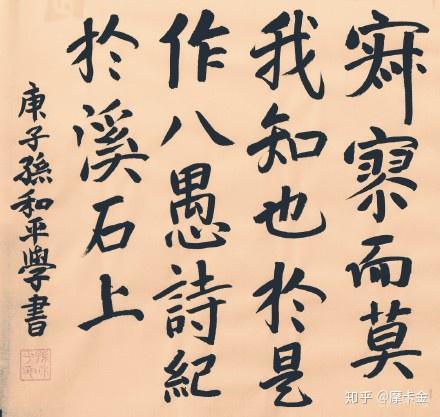 寂寥而莫
我知也於是
作八愚詩紀
於溪石上
庚子孫和平學書
知乎 @摩卡金